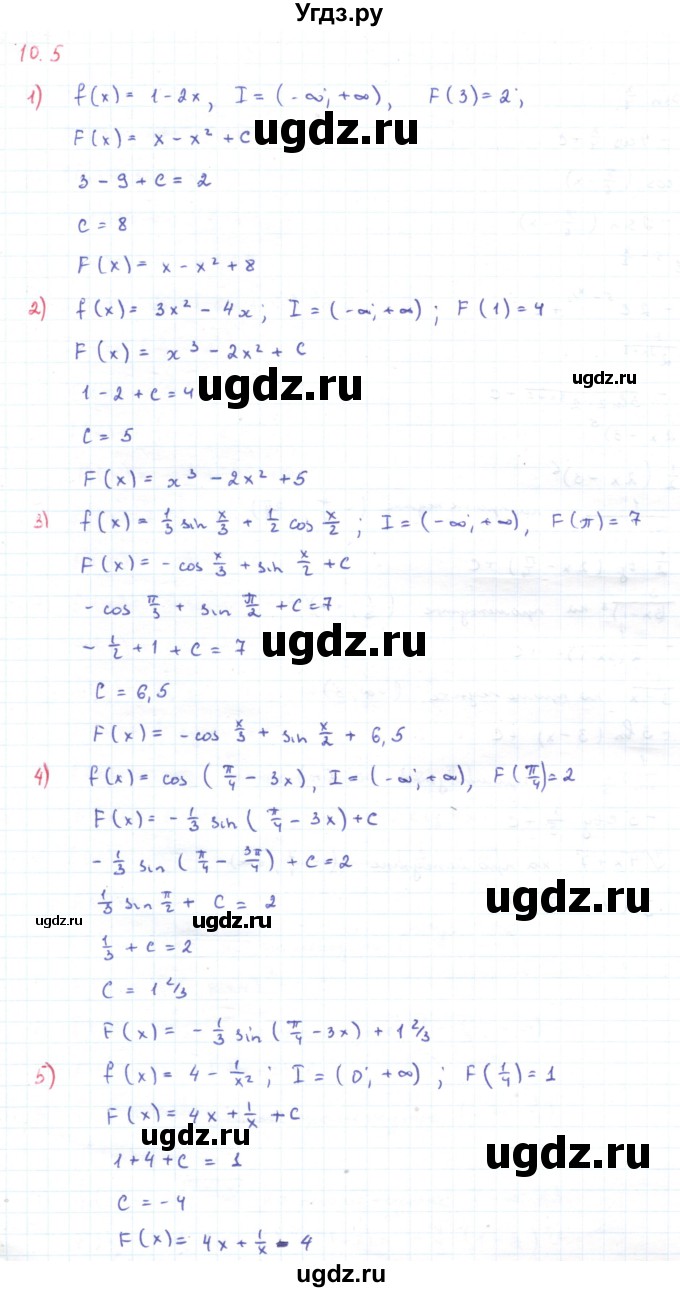 Угдз.ру
10.5
1) f(x) = 1 - 2x, I = (-∞; +∞), F(3) = 2;
F(x) = x - x² + C
ugdz.ru
3 - 9 + C = 2
C = 8
F(x) = x - x² + 8
2) f(x) = 3x² - 4x; I = (-∞; +∞); F(1) = 4
F(x) = x³ - 2x² + C
ugdz.ru
1 - 2 + C = 4
ugdz.ru
C = 5
F(x) = x³ - 2x² + 5
3) f(x) = 1/3 sin x/3 + 1/2 cos x/2; I = (-∞; +∞), F(π) = 7
F(x) = -cos x/3 + sin x/2 + C
-cos π/3 + sin π/2 + C = 7
-1/2 + 1 + C = 7
ugdz.ru
C = 6,5
F(x) = -cos x/3 + sin x/2 + 6,5
4) f(x) = cos (π/4 - 3x), I = (-∞; +∞), F(π/4) = 2
F(x) = -1/3 sin (π/4 - 3x) + C
-1/3 sin (π/4 - 3π/4) + C = 2
ugdz.ru
1/3 sin π/2 + C = 2
ugdz.ru
ugdz.ru
1/3 + C = 2
C = 1 2/3
F(x) = -1/3 sin (π/4 - 3x) + 1 2/3
5) f(x) = 4 - 1/x²; I = (0; +∞); F(1/4) = 1
F(x) = 4x + 1/x + C
ugdz.ru
ugdz.ru
1 + 4 + C = 1
C = -4
F(x) = 4x + 1/x - 4
ugdz.ru